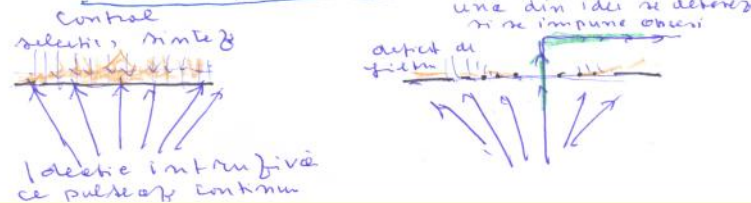 Control
selectie, sinteză
Ideatie intruzivă
ce pulsează continuu
una din idei se
si se impune obsesi
deficit de
filtru